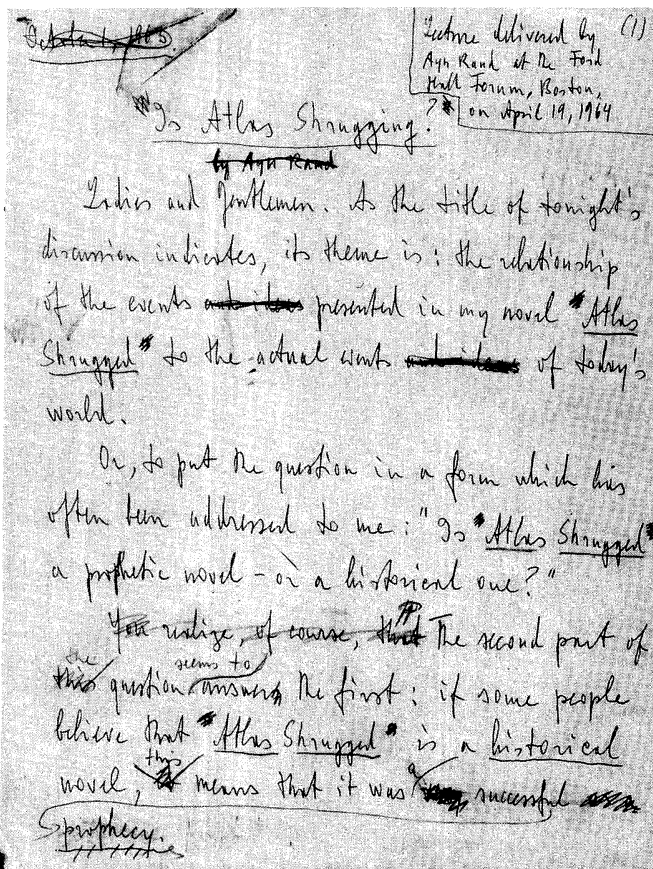 October 1, 1963
Lecture delivered by (1)
Ayn Rand at the Ford
Hall Forum, Boston,
on April 19, 1964
"Is Atlas Shrugging?"
by Ayn Rand
Ladies and Gentlemen. As the title of tonight's
discussion indicates, its theme is: the relationship
of the events and ideas presented in my novel "Atlas
Shrugged" to the actual events and ideas of today's
world.
Or, to put the question in a form which has
often been addressed to me: "Is "Atlas Shrugged"
a prophetic novel – or a historical one?"
You realize, of course, that The second part of
the seems to
this question answers the first: if some people
believe that "Atlas Shrugged" is a historical
this
novel, it means that it was a successful
prophecy.